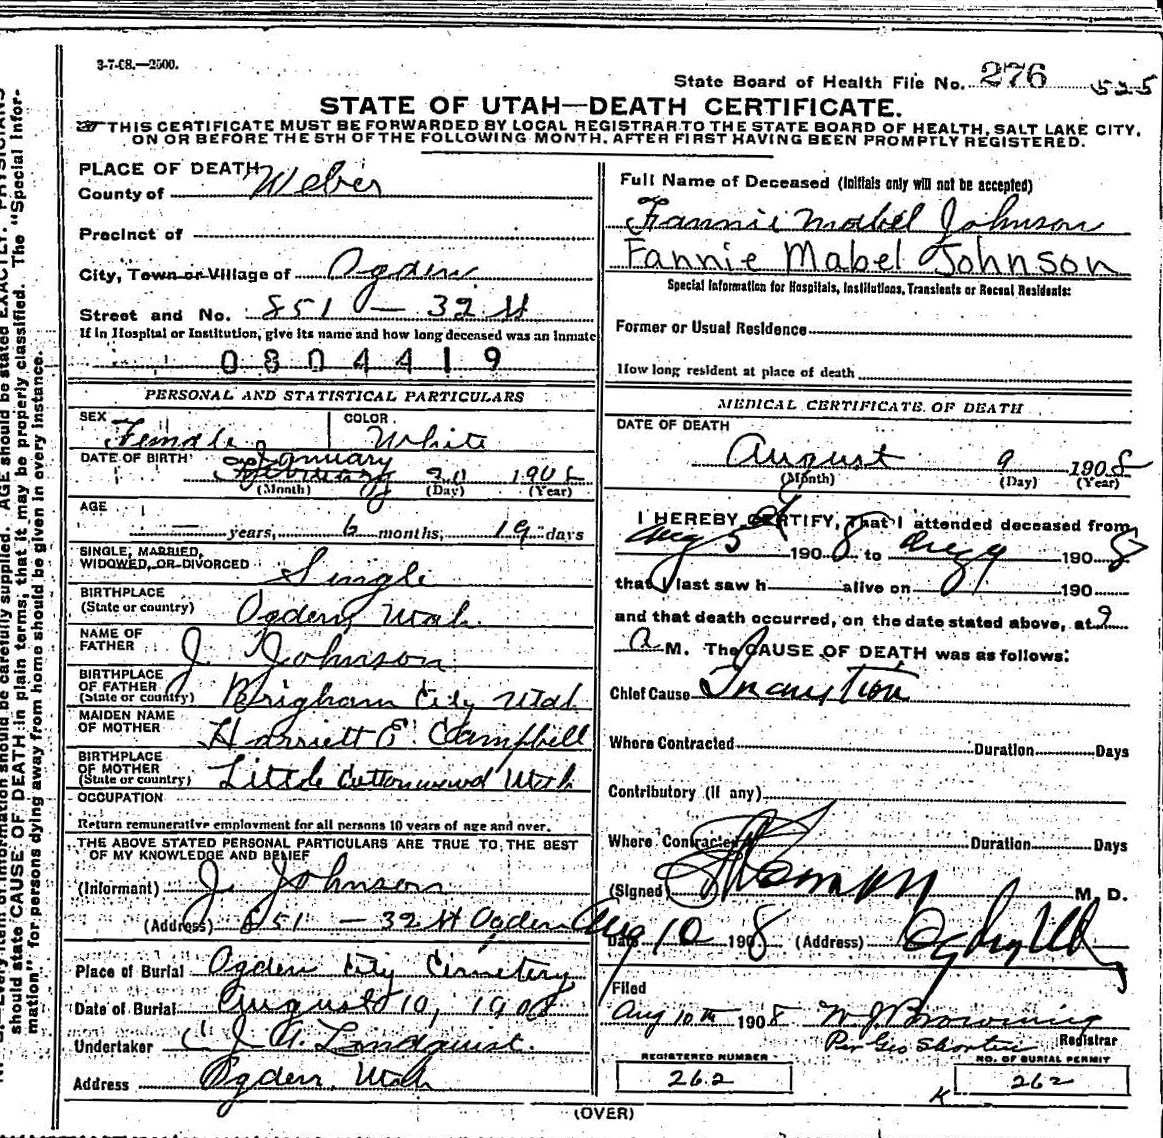 3-7-08.—2500.
State Board of Health File No. 276 525
STATE OF UTAH—DEATH CERTIFICATE.
THIS CERTIFICATE MUST BE FORWARDED BY LOCAL REGISTRAR TO THE STATE BOARD OF HEALTH, SALT LAKE CITY,
ON OR BEFORE THE 5TH OF THE FOLLOWING MONTH, AFTER FIRST HAVING BEEN PROMPTLY REGISTERED.
PLACE OF DEATH
County of Weber
Precinct of
City, Town or Village of Ogden
Street and No. 851 — 32 St
If in Hospital or Institution, give its name and how long deceased was an inmate
0804419
PERSONAL AND STATISTICAL PARTICULARS
SEX Female COLOR White
January
DATE OF BIRTH February 20 1908
(Month) (Day) (Year)
AGE
— years, 6 months, 19 days
SINGLE, MARRIED,
WIDOWED, OR DIVORCED Single
BIRTHPLACE
(State or country) Ogden, Utah.
NAME OF
FATHER J. Johnson
BIRTHPLACE
OF FATHER
(State or country) Brigham City Utah
MAIDEN NAME
OF MOTHER Harriett E. Campbell
BIRTHPLACE
OF MOTHER
(State or country) Little Cottonwood Utah
OCCUPATION
Return remunerative employment for all persons 10 years of age and over.
THE ABOVE STATED PERSONAL PARTICULARS ARE TRUE TO THE BEST
OF MY KNOWLEDGE AND BELIEF
(Informant) J. Johnson
(Address) 851 — 32 St Ogden
Place of Burial Ogden City Cemetery
Date of Burial August 10, 1908
Undertaker J A. Lindquist.
Address Ogden, Utah
Full Name of Deceased (Initials only will not be accepted)
Fannie Mabel Johnson
Fannie Mabel Johnson
Special Information for Hospitals, Institutions, Transients or Recent Residents:
Former or Usual Residence
How long resident at place of death
MEDICAL CERTIFICATE OF DEATH
DATE OF DEATH
August 9 1908
(Month) (Day) (Year)
I HEREBY CERTIFY, That I attended deceased from
Aug 5 1908 to Aug 9 1908
that I last saw h alive on 190
and that death occurred, on the date stated above, at 9
A M. The CAUSE OF DEATH was as follows:
Chief Cause Inanition
Where Contracted Duration Days
Contributory (if any)
Where Contracted Duration Days
(Signed) M. D.
Date Aug 10 1908 (Address) Ogden Utah
Filed
Aug 10th 1908 W J Browning
Per Geo Shorten Registrar
REGISTERED NUMBER
262
NO. OF BURIAL PERMIT
K 262
(OVER)
Every item of information should be carefully supplied. AGE should be stated EXACTLY. PHYSICIANS
should state CAUSE OF DEATH in plain terms, that it may be properly classified. The "Special Infor-
mation" for persons dying away from home should be given in every instance.